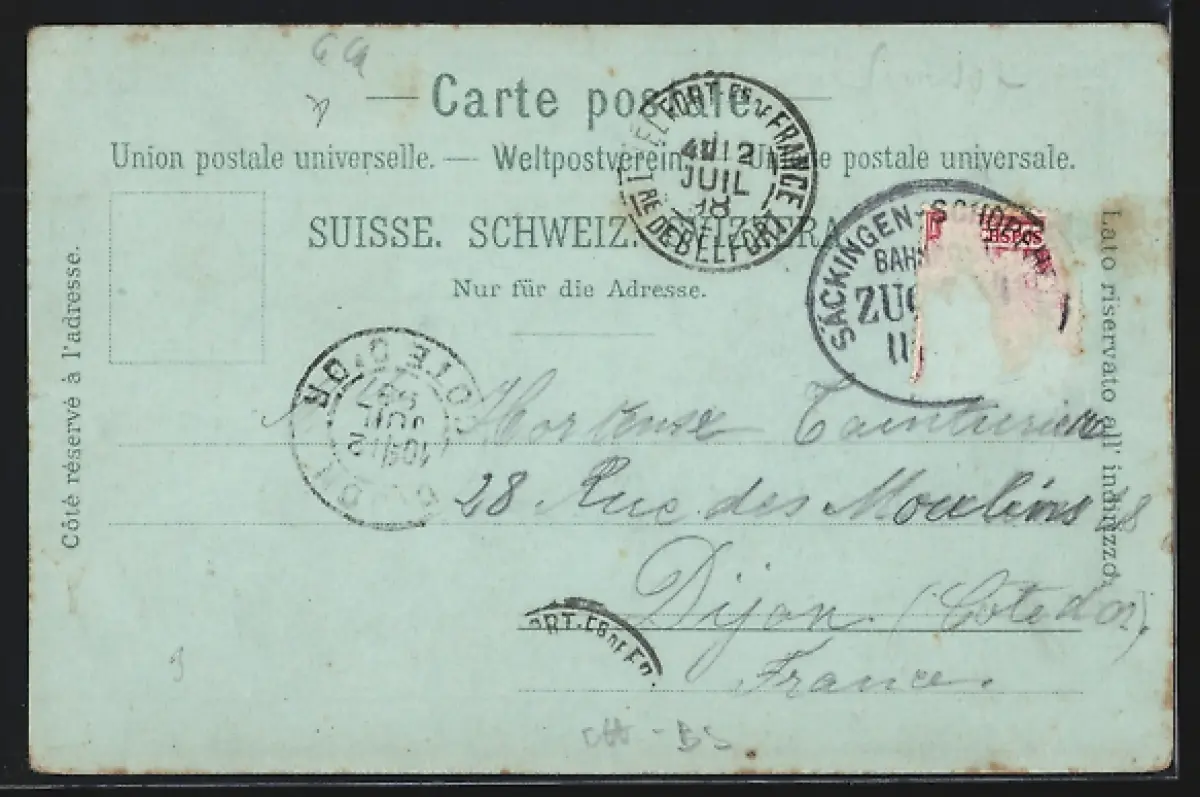 Carte postale
Union postale universelle. — Weltpostverein. — Unione postale universale.
SUISSE. SCHWEIZ. SVIZZERA
Nur für die Adresse.
Côté réservé à l'adresse.
Lato riservato all' indirizzo.
BELFORT ES DE FRANCE
4 12
JUIL
98
1RE DE BELFORT
SÄCKINGEN-SCHOPFHEIM
BAH
ZUG
DIJON COTE-D'OR
12
JUIL
Hortense
28 Rue des Moulins 28
Dijon (Cote d'or)
France.
ORT. ES DE
CH - BS